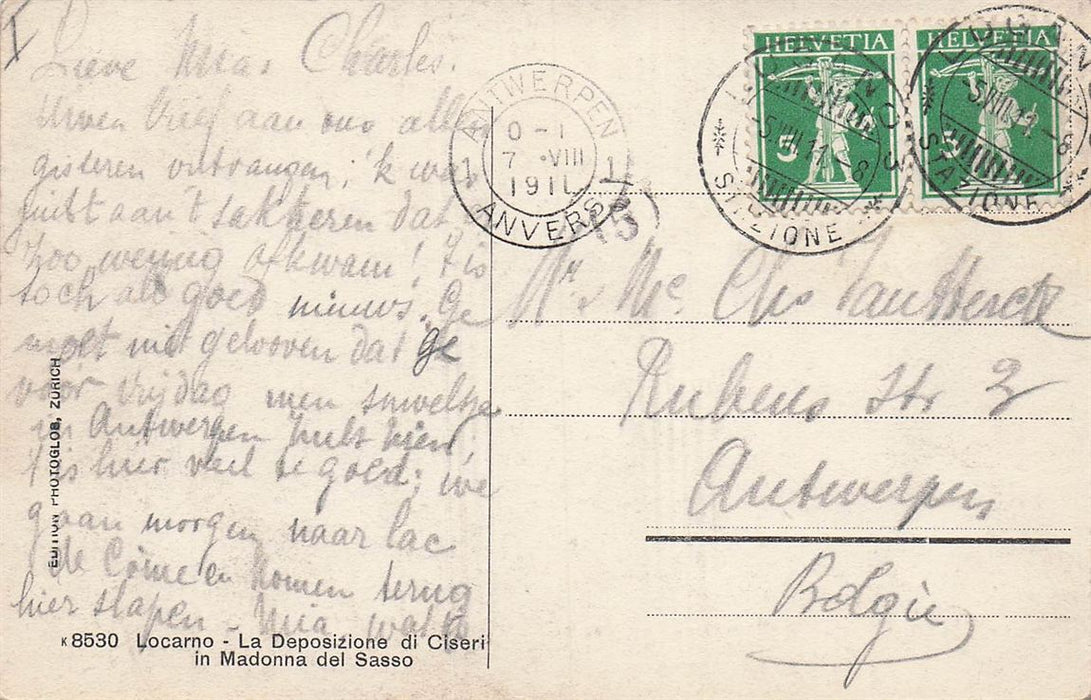 I
Lieve Mia, Charles.
Uwen brief aan ons allen
gisteren ontvangen, 'k was
juist aan 't sakkeren dat
zoo weinig afkwam! 't is
toch al goed nieuws. Ge
moet niet gelooven dat ge
voor vrijdag men snueltje
in Antwerpen zult zien,
't is hier veel te goed; we
gaan morgen naar lac
de Côme en komen terug
hier slapen - Mia,
ÉDITION PHOTOGLOB, ZÜRICH
K 8530 Locarno - La Deposizione di Ciseri
in Madonna del Sasso
ANTWERPEN
0 - 1
7 VIII
1911
1 1
ANVERS
15
HELVETIA HELVETIA
5 5
STAZIONE STAZIONE
Mr & Me Chs
Rubens Str 2
Antwerpen
Belgie